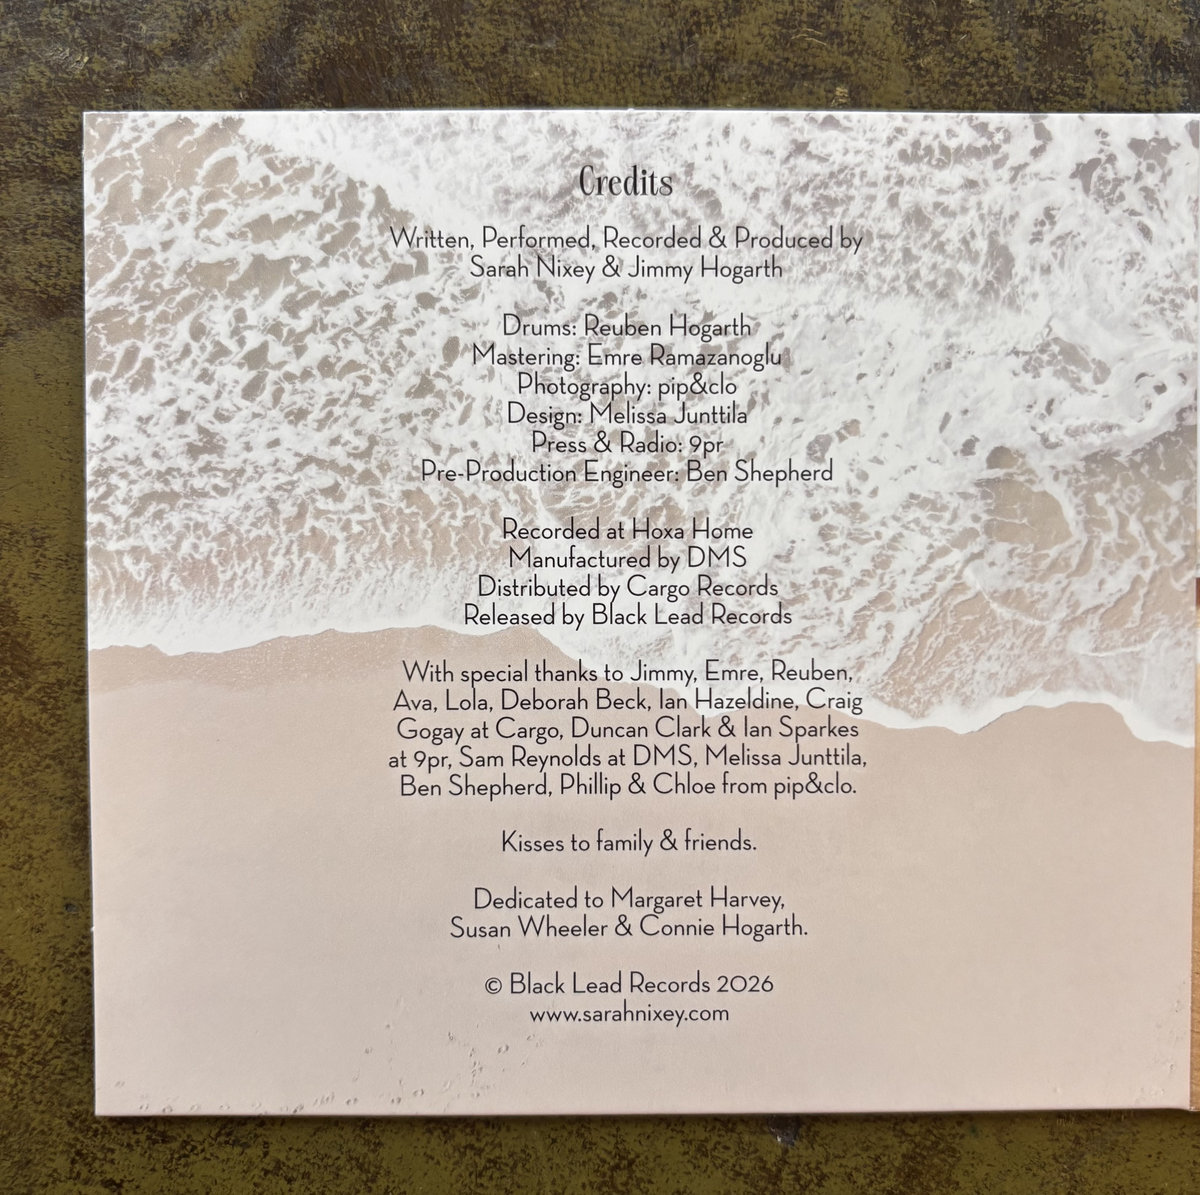 Credits
Written, Performed, Recorded & Produced by
Sarah Nixey & Jimmy Hogarth
Drums: Reuben Hogarth
Mastering: Emre Ramazanoglu
Photography: pip&clo
Design: Melissa Junttila
Press & Radio: 9pr
Pre-Production Engineer: Ben Shepherd
Recorded at Hoxa Home
Manufactured by DMS
Distributed by Cargo Records
Released by Black Lead Records
With special thanks to Jimmy, Emre, Reuben,
Ava, Lola, Deborah Beck, Ian Hazeldine, Craig
Gogay at Cargo, Duncan Clark & Ian Sparkes
at 9pr, Sam Reynolds at DMS, Melissa Junttila,
Ben Shepherd, Phillip & Chloe from pip&clo.
Kisses to family & friends.
Dedicated to Margaret Harvey,
Susan Wheeler & Connie Hogarth.
© Black Lead Records 2026
www.sarahnixey.com